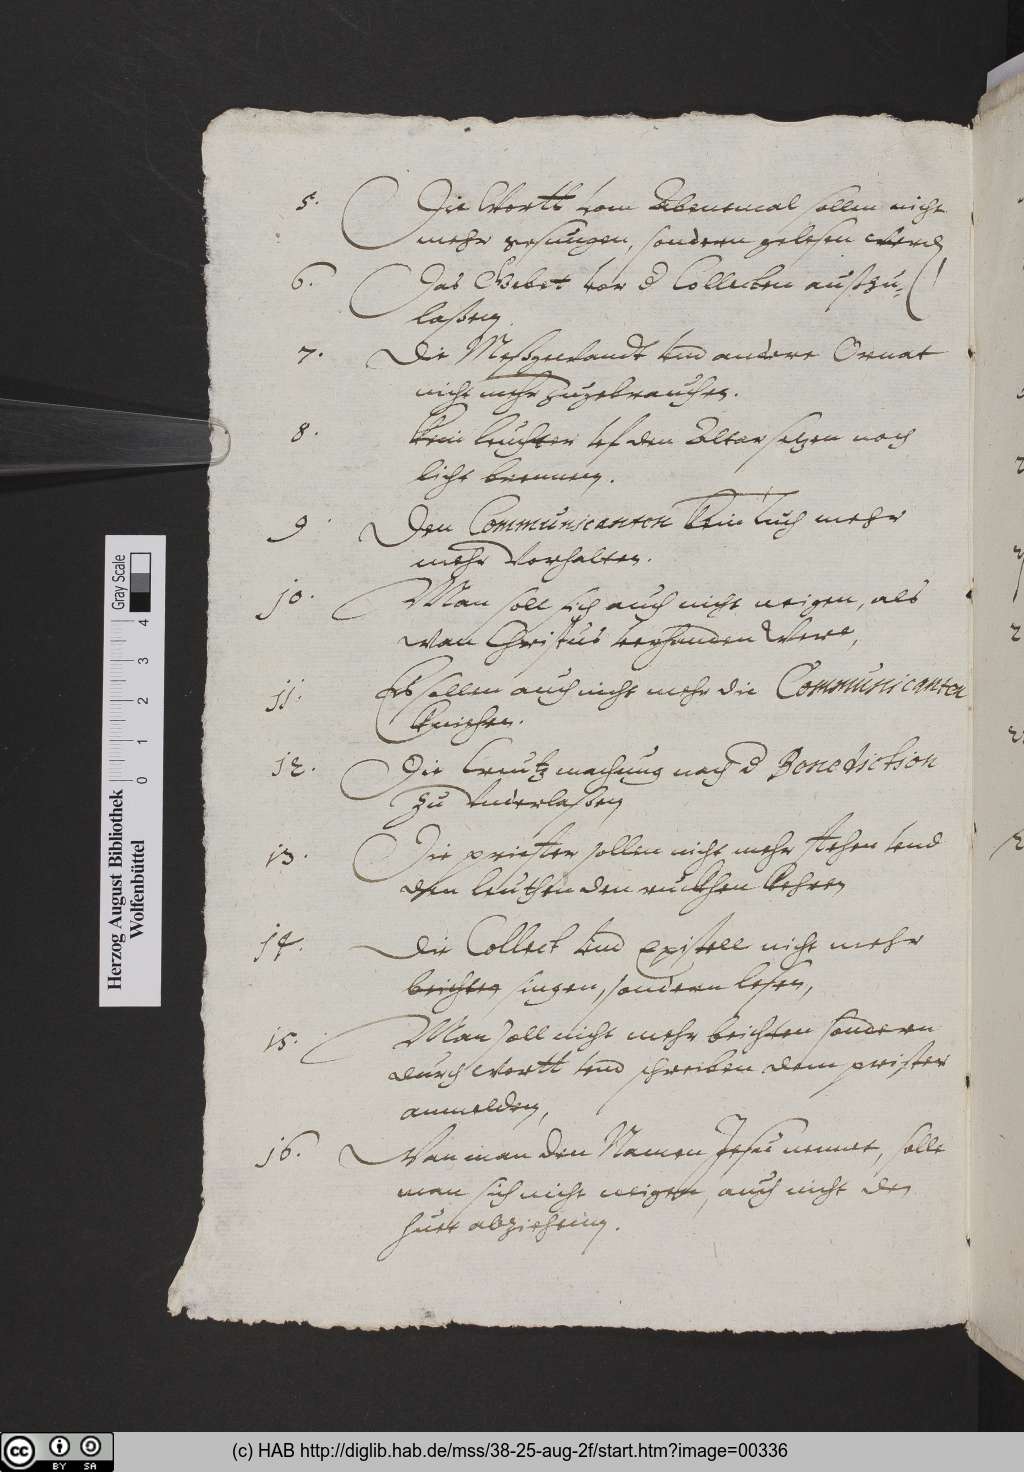 5. Die Wortt vom Abentmal sollen nicht
mehr gesungen, sondern gelesen werdn
6. Das Gebet vor d Collecten außzu-
laßen
7. Die Meßgewandt vnd andere Ornat
nicht mehr zugebrauchen.
8. Kein leuchter vf den Altar setzen noch
licht brennen.
9. Den Communicanten kein tuch mehr
mehr vorhalten.
10. Man soll sich auch nicht neigen, als
wan Christus verhanden Were,
11. Es sollen auch nicht mehr die Communicanten
kniehen.
12. Die Creutzmachung nach d Benediction
zu vnderlaßen
13. Die priester sollen nicht mehr stehen vnd
den leuthen den ruckhen kehren
14. Die Collect vnd Epistell nicht mehr
beichten singen, sondern lesen,
15. Man soll nicht mehr beichten sondern
durch wortt vnd schreiben dem prister
anmelden,
16. Wan man den Namen Jesu nennet, solle
man sich nicht neigen, auch nicht den
huet abziehein.
Herzog August Bibliothek
Wolfenbüttel
0 1 2 3 4
Gray Scale
cc BY SA
(c) HAB http://diglib.hab.de/mss/38-25-aug-2f/start.htm?image=00336